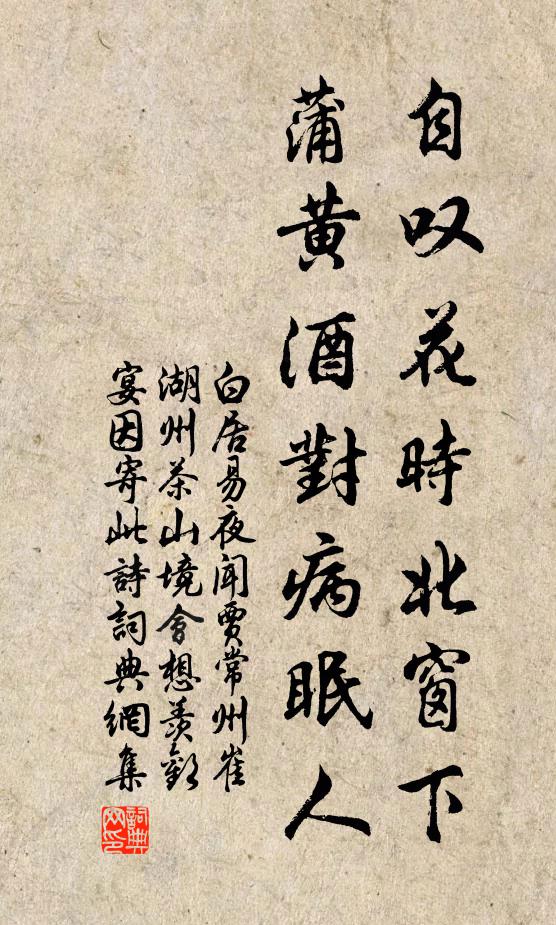 自叹花時北窗下
蒲黄酒對病眠人
白居易夜闻賈常州崔
湖州茶山境會想羡歡
宴因寄此詩詞典網集
詞典网印